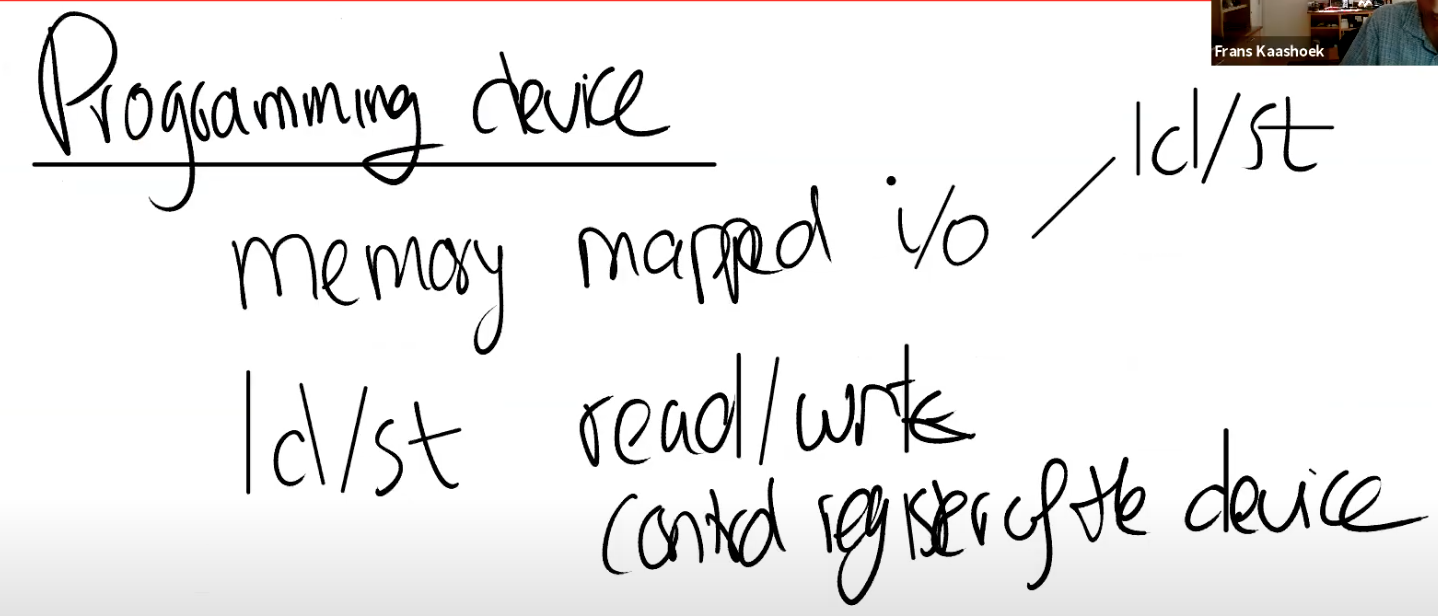 Frans Kaashoek
Programming device
ld/st
memory mapped i/o
ld/st read/write
control register of the device